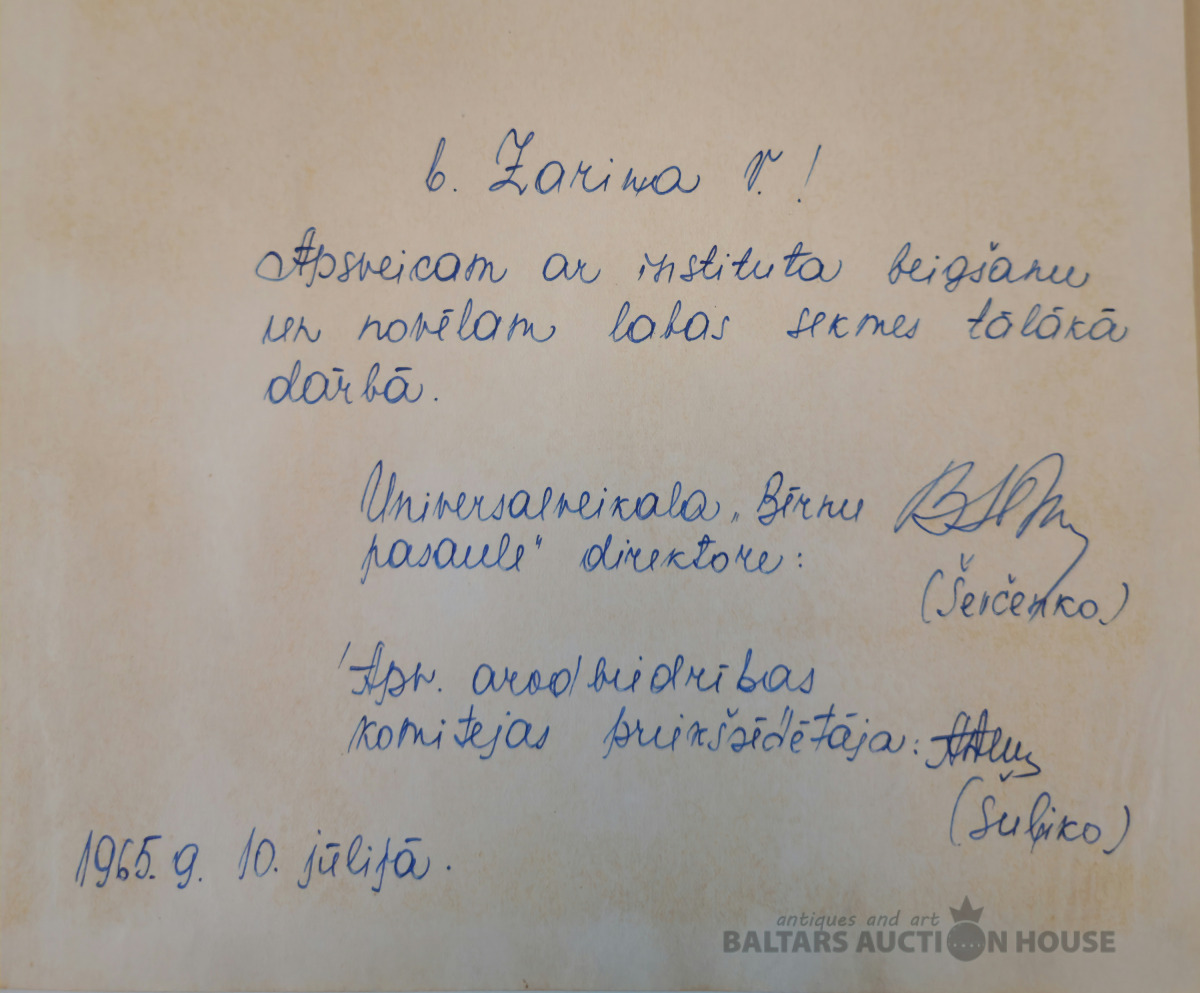 b. Zariņa V.!
Apsveicam ar instituta beigšanu
un novēlam labas sekmes tālākā
dārbā.
Universalveikala „Bērnu
pasaule" direktore:
(Ševčenko)
Apv. arodbiedrības
komitejas priekšsēdētāja:
(Šuļiko)
1965. g. 10. jūlijā.
antiques and art
BALTARS AUCTION HOUSE